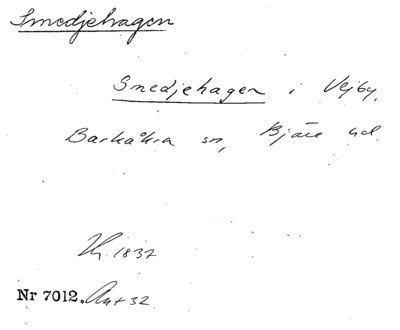 Smedjehagen
Smedjehagen i Vejby,
Barkåkra sn, Bjäre hd.
1837
Nr 7012. Ant 32